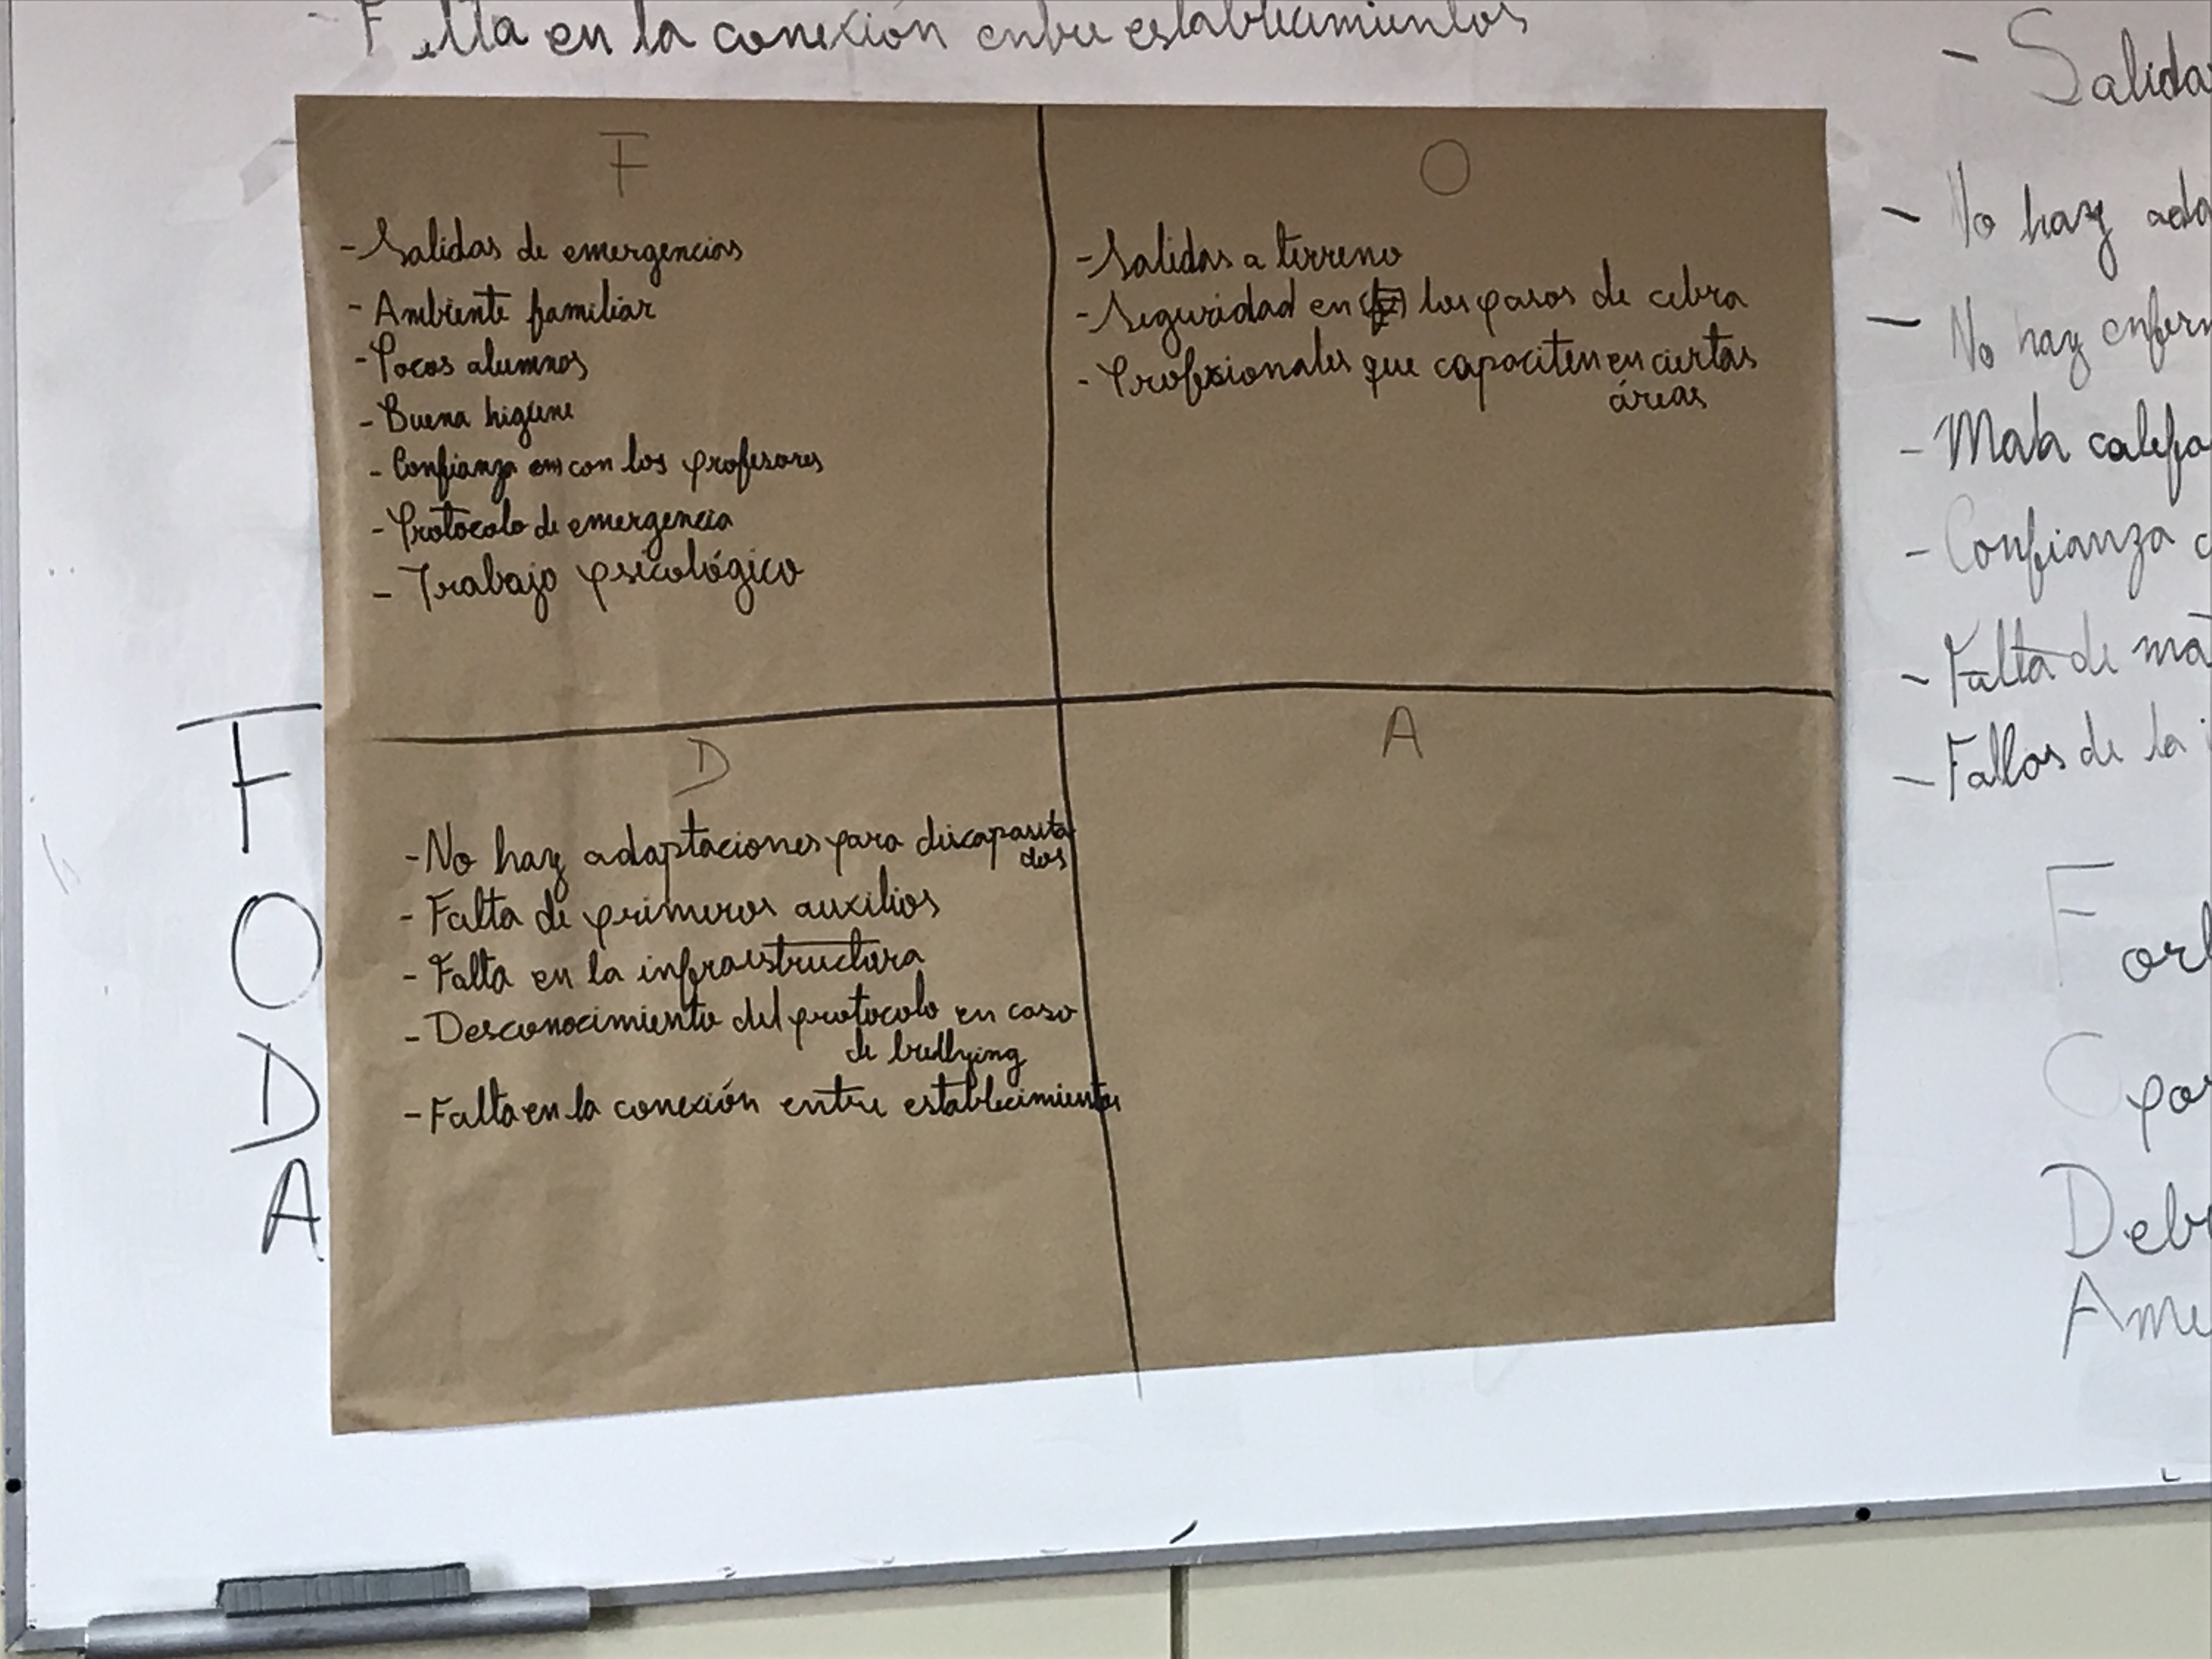 Falta en la conexión entre establecimientos
F
- Salidas de emergencias
- Ambiente familiar
- Pocos alumnos
- Buena higiene
- Confianza con los profesores
- Protocolo de emergencia
- Trabajo psicológico
O
- Salidas a terreno
- Seguridad en los pasos de cebra
- Profesionales que capaciten en ciertas
áreas
D
- No hay adaptaciones para discapasita
dos
- Falta de primeros auxilios
- Falta en la infraestructura
- Desconocimiento del protocolo en caso
de bullying
- Falta en la conexión entre establecimientos
A
F
O
D
A
- Salida
- No hay ada
- No hay enferm
- Mala calefa
- Confianza c
- Falta de ma
- Fallas de la i
Fort
Opor
Deb
Ame